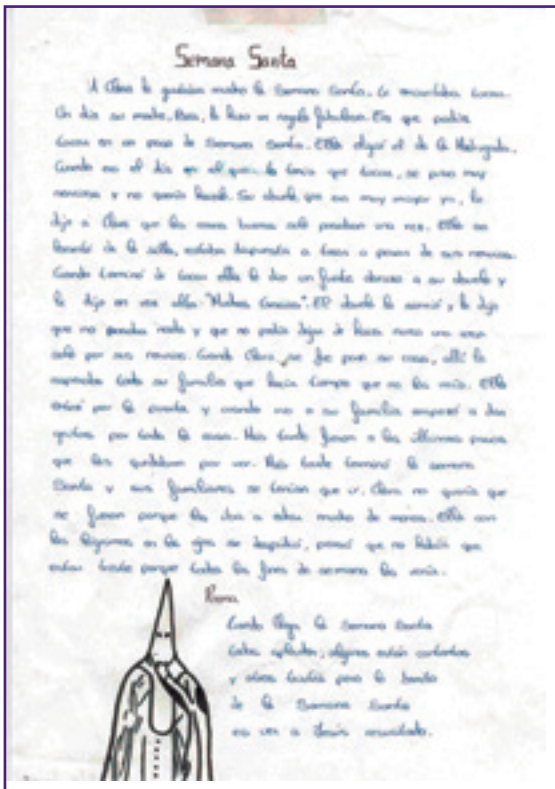 Semana Santa
A Clara le gustaba mucho la Semana Santa, le encantaba tocar.
Un día su madre, Rosa, le hizo un regalo fabuloso. Era que podría
tocar en un paso de Semana Santa. Ella eligió el de la Madrugada.
Cuando era el día en el que le tenía que tocar, se puso muy
nerviosa y no quería hacerlo. Su abuelo, que era muy mayor ya, le
dijo a Clara que las cosas buenas solo pasaban una vez. Ella se
levantó de la silla, estaba dispuesta a tocar a pesar de sus nervios.
Cuando terminó de tocar ella le dio un fuerte abrazo a su abuelo y
le dijo en voz alta "Muchas Gracias". El abuelo le sonrió y le dijo
que no pasaba nada y que no podía dejar de hacer nunca una cosa
solo por sus nervios. Cuando Clara, se fue para su casa, allí la
esperaba toda su familia que hacía tiempo que no los veía. Ella
entró por la puerta y cuando vio a su familia empezó a dar
gritos por toda la casa. Más tarde fueron a los últimos pasos
que les quedaban por ver. Más tarde terminó la semana
Santa y sus familiares se tenían que ir. Clara no quería que
se fueran porque los iba a echar mucho de menos. Ella con
las lágrimas en los ojos se despidió, pensó que no había que
estar triste porque todos los fines de semana los vería.
Poema
Cuando llega la Semana Santa
todos aplauden, algunos están contentos
y otros tristes pero lo bonito
de la Semana Santa
es ver a Jesús resucitado.